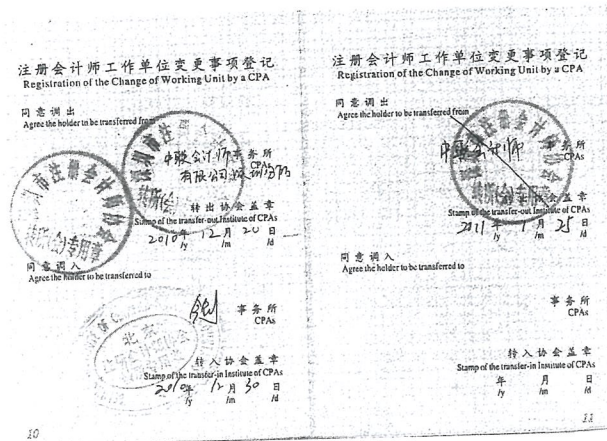 注册会计师工作单位变更事项登记
Registration of the Change of Working Unit by a CPA
同意调出
Agree the holder to be transferred from
中联会计师事务所
CPAs
有限公司深圳分所
转出协会盖章
Stamp of the transfer-out Institute of CPAs
2010年 12月 20日
/y /m /d
同意调入
Agree the holder to be transferred to
事务所
CPAs
转入协会盖章
Stamp of the transfer-in Institute of CPAs
2010年 12月 30日
/y /m /d
10
深圳市注册会计师协会
转所(会)专用章
北京
注册会计师协会
注册会计师工作单位变更事项登记
Registration of the Change of Working Unit by a CPA
同意调出
Agree the holder to be transferred from
中联会计师事务所
CPAs
转所(会)专用章
转出协会盖章
Stamp of the transfer-out Institute of CPAs
2011年 1月 25日
/y /m /d
同意调入
Agree the holder to be transferred to
事务所
CPAs
转入协会盖章
Stamp of the transfer-in Institute of CPAs
年 月 日
/y /m /d
11